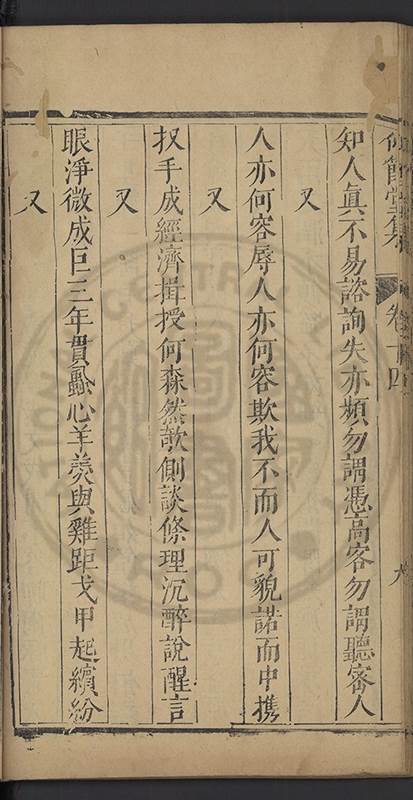 堂集 卷十四
知人眞不易諮詢失亦頻勿謂憑高客勿謂聽審人
又
人亦何容辱人亦何容欺我不而人可貌諾而中携
又
扠手成經濟揖授何森然欹側談條理沉醉說醒言
又
眼淨微成巨三年貫蝨心羊羮與雞距戈甲起繽紛
又